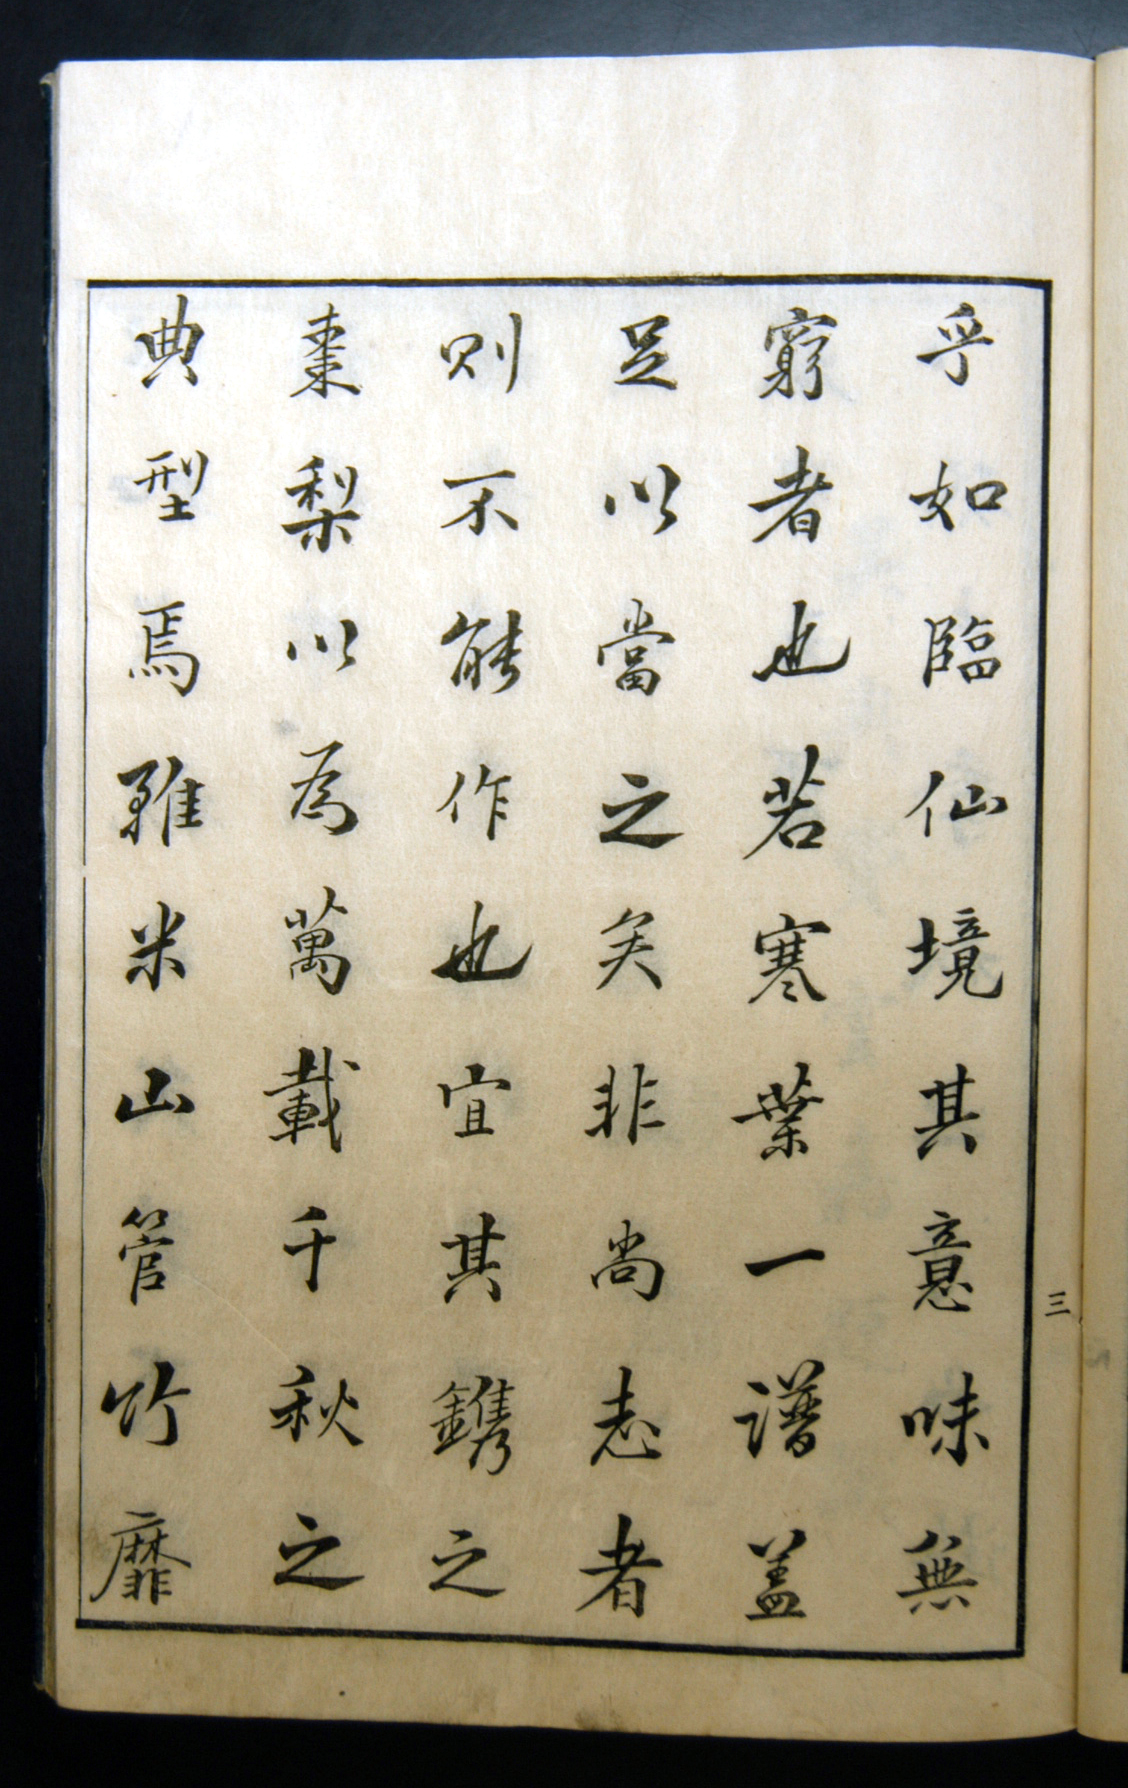 乎如臨仙境其意味無
窮者也若寒葉一譜蓋
足以當之矣非尚志者
則不能作也宜其鐫之
棗梨以為萬載千秋之
典型焉雖米山管竹靡
三